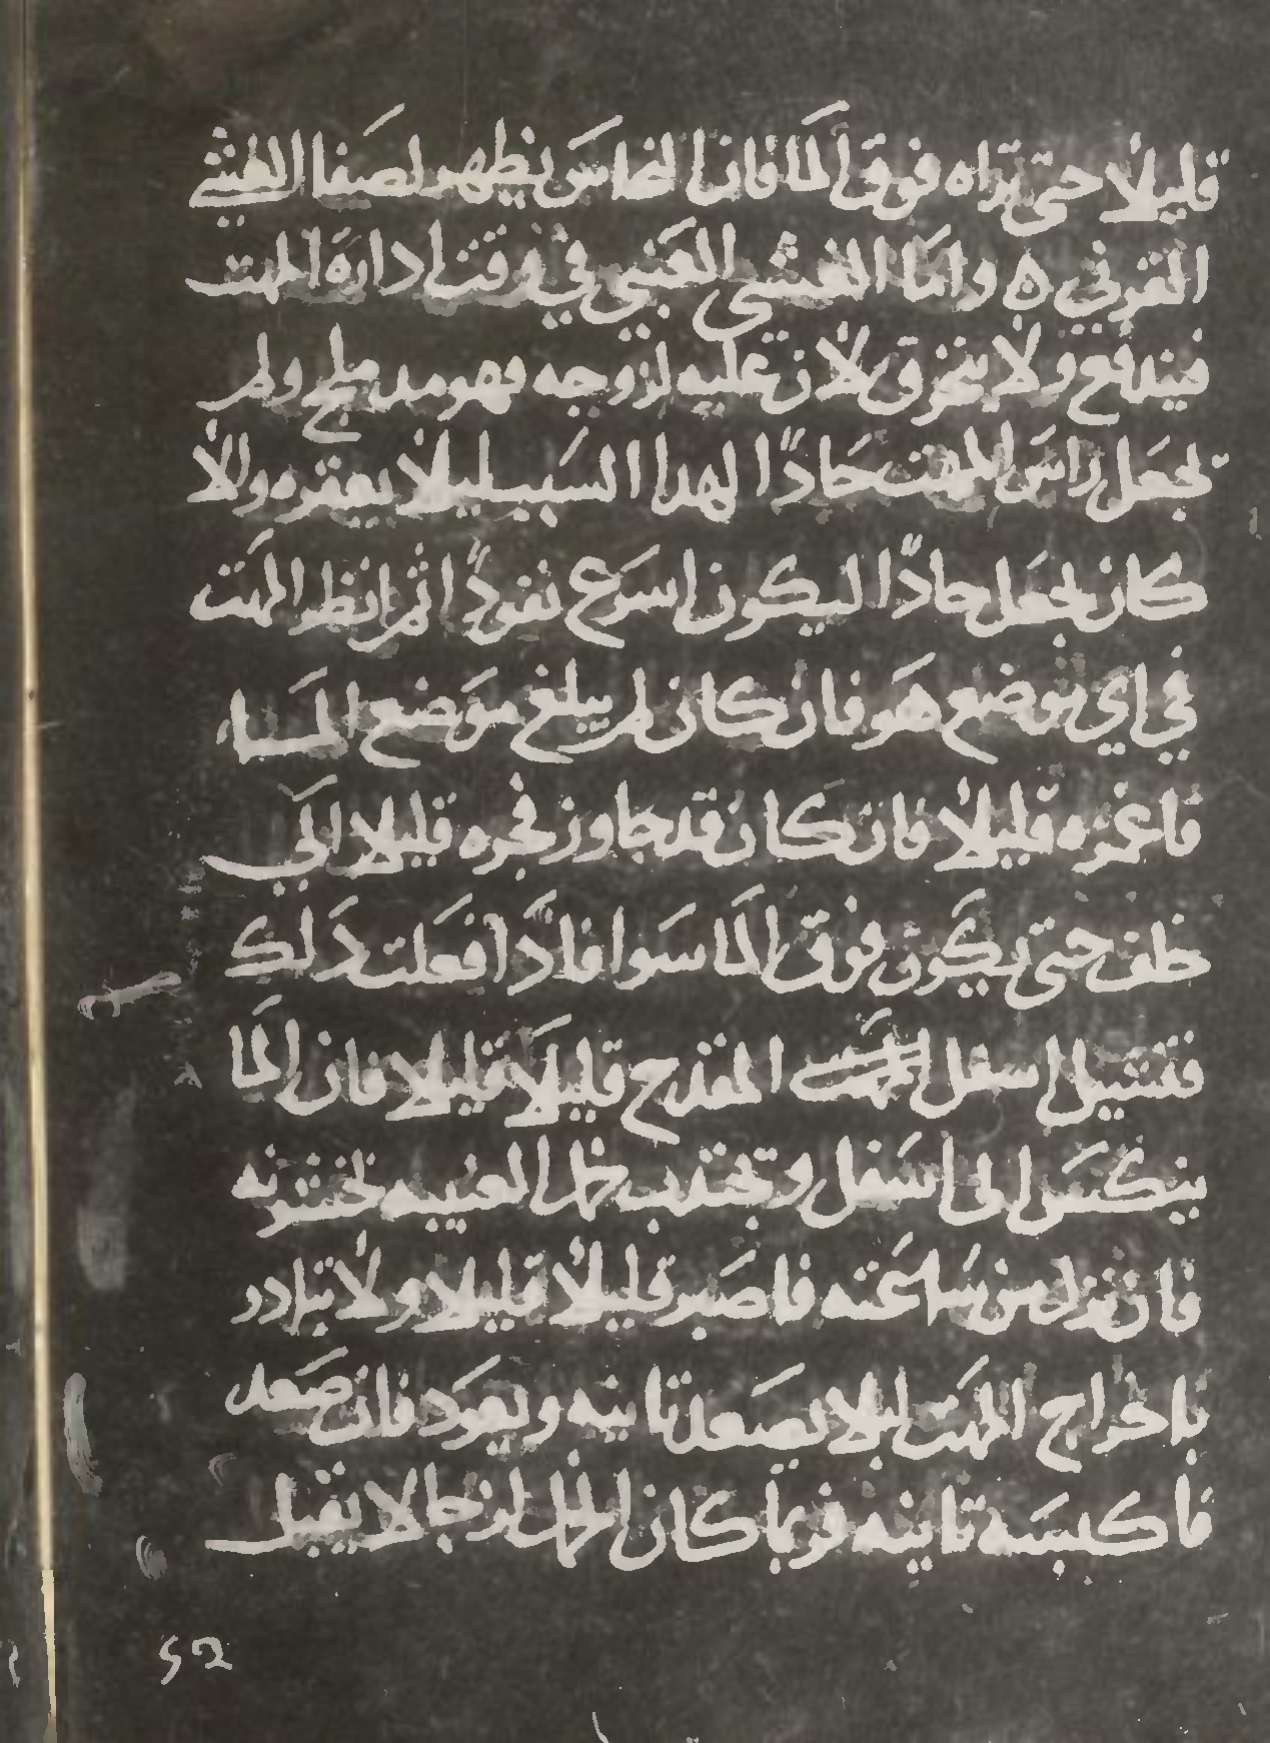 قليلاً حتى تراه فوق الما فان النحاس يظهر لصفا الغشي
القرني ه واما الغشي العنبي في وقت ادارة المهت
فيندفع ولا ينخرق لان عليه لزوجه فهو مدملج ولم
يجعل راس المهت حادًا لهدا السبب ليلا يعقره والا
كان يجعل حادًا ليكون اسرع نفودًا ثم انظر المهت
في اي موضع هو فان كان لم يبلغ موضع الما
فاغمزه قليلاً فان كان قد جاوز فجره قليلا الي
خلف حتى يكون فوق الما سوا فادا فعلت دلك
فتشيل اسفل المقدح قليلا قليلا فان الما
ينكبس الى اسفل وتجتدب خمل العنبيه بخشونه
فان نزل من ساعته فاصبر قليلاً قليلا ولا تبادر
باخراج المهت ليلا يصعد تانيه ويعود فان صعد
فاكبسه تانيه فربما كان الما لزجا لا يقبل
52